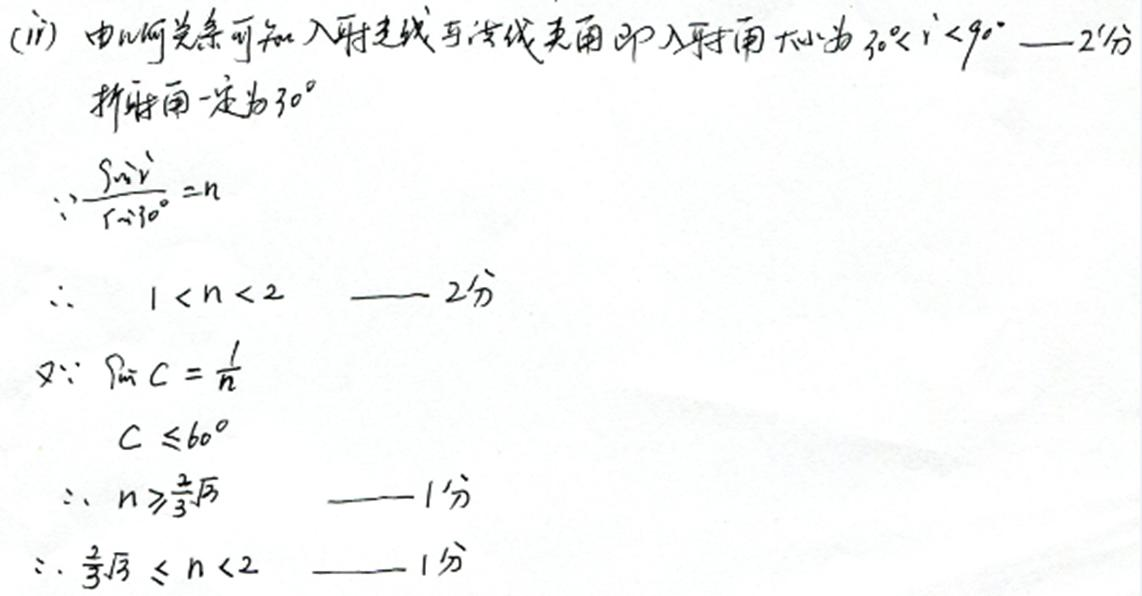 (ii) 由几何关系可知入射光线与法线夹角即入射角大小为 30°< i <90° —— 2分
折射角一定为30°
∵ sin i / sin30° = n
∴ 1 < n < 2 —— 2分
又∵ sin C = 1/n
C ≤ 60°
∴ n ≥ 2/3 √3 —— 1分
∴ 2/3 √3 ≤ n < 2 —— 1分